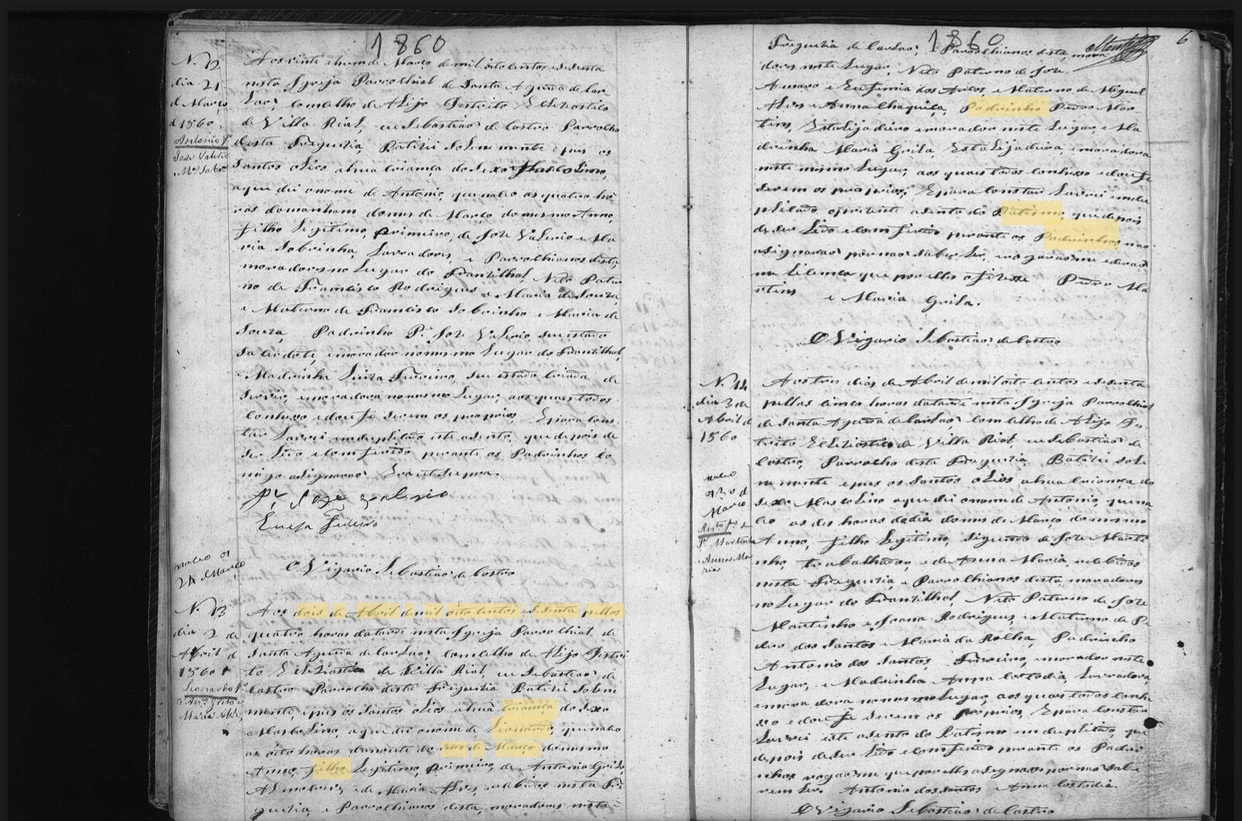 1860
N. 12
dia 21
de Março
d 1860
Antonio f.
José Valerio
Aos vinte e hum de Março de mil oito centos, e sesenta
nesta Igreja Parrochial de Santa Agueda de Car
lão; Concelho de Alijo Destrito Eclesiastico
de Villa Rial, eu Sebastião de Castro Parrocho
desta Freguezia, Batizei Solenmente e pus os
Santos Olios, a hua criança do Sexo Masculino,
a que dei o nome de Antonio, que naceo as quatro ho
ras da manham do mes de Março do mesmo Anno,
Filho Legitimo, primeiro, de Joze Valerio e Ma
ria Sobrinha, Lavradores, e Parrochianos desta,
moradores no Lugar do Franzilhal, Neto Pater
no de Francisco Rodrigues, e Maria de Souza
e Materno de Francisco Sobrinho e Maria de
Souza, Padrinho P.e Joze Valerio seu estado
Sacerdote, e morador no mesmo Lugar do Franzilhal
Madrinha Luiza Teixeira, seu estado criada de
Servir, e moradora no mesmo Lugar, aos quais todos
conheço e dou fé serem os proprios. E para cons
tar Lavrei em duplicado este asento, que depois de
Ser Lido e conferido perante os Padrinhos co
migo asignarão. Era ut supra.
P.e Joze Valerio
Luiza Teixeira
O Vigario Sebastião de Castro
naceo a
24 Março
N. 13
dia 2 de
Abril de
1860
Leonardo f.
Maria Alves
Aos dois de Abril de mil oito centos e sesenta pellas
quatro horas da tarde nesta Igreja Parrochial de
Santa Agueda de Carlao; Concelho de Alijo Destri
to Eclesiastico de Villa Rial, eu Sebastião de
Castro Parrocho desta Freguezia Batizei Solen
mente, e pus os Santos Olios a hua criança do Sexo
Masculino, a que dei o nome de Leonardo, que naceo
as oito horas da noite do mes de Março do mesmo
Anno, Filho Legitimo, primeiro, de Antonio Grilo,
e de Maria Alves, recebidos nesta Fre
guezia e Parrochianos desta, moradores neste
1860
6
Freguezia de Carlao; Parrochianos desta, mora
dores neste Lugar, Neto Paterno de Joze
Amaro e Eufemia dos Anjos, e Materno de Miguel
Alves e Anna Chaquiça, Padrinho Pedro Mar
tins, e morador neste Lugar, e Ma
drinha Maria Grila, e moradora
neste mesmo Lugar, aos quais todos conheço e dou fé
serem os proprios. E para constar Lavrei em du
plicado o prezente asento de Batismo, que depois
de Ser Lido e conferido perante os Padrinhos não
asignarão por não saber Ler,
Pedro Ma
rtins e Maria Grila.
O Vigario Sebastião de Castro
N. 14
dia 3 de
Abril de
1860
naceo
a 30 d
Março
Aos tres dias de Abril de mil oito centos e sesenta
pellas cinco horas da tarde nesta Igreja Parrochial
de Santa Agueda de Carlao; Concelho de Alijo Des
trito Eclesiastico de Villa Rial eu Sebastião de
Castro, Parrocho desta Freguezia, Batizei Sole
nmente e pus os Santos Olios a hua criança do
Sexo Masculino a que dei o nome de Antonio, que na
ceo as dez horas do dia do mes de Março do mesmo
Anno, Filho Legitimo, Segundo de Joze Marti
nho trabalhador e de Anna Maria, recebidos
nesta Freguezia e Parrochianos desta, moradores
no Lugar do Franzilhal Neto Paterno de Joze
Martinho e Joana Rodrigues, e Materno de Pe
dro dos Santos e Maria da Rocha, Padrinho
Antonio dos Santos Terceiro, morador neste
Lugar, e Madrinha Anna Custodia, Lavradora
e moradora no mesmo Lugar, aos quais todos conhe
ço e dou fé serem os proprios, E para constar
Lavrei este asento de Batismo em duplicado, que
depois de ser Lido e conferido perante os Padri
nhos rogarão me que por elles asignase por não sabe
rem Ler. Antonio dos Santos e Anna Custodia.
O Vigario Sebastião de Castro